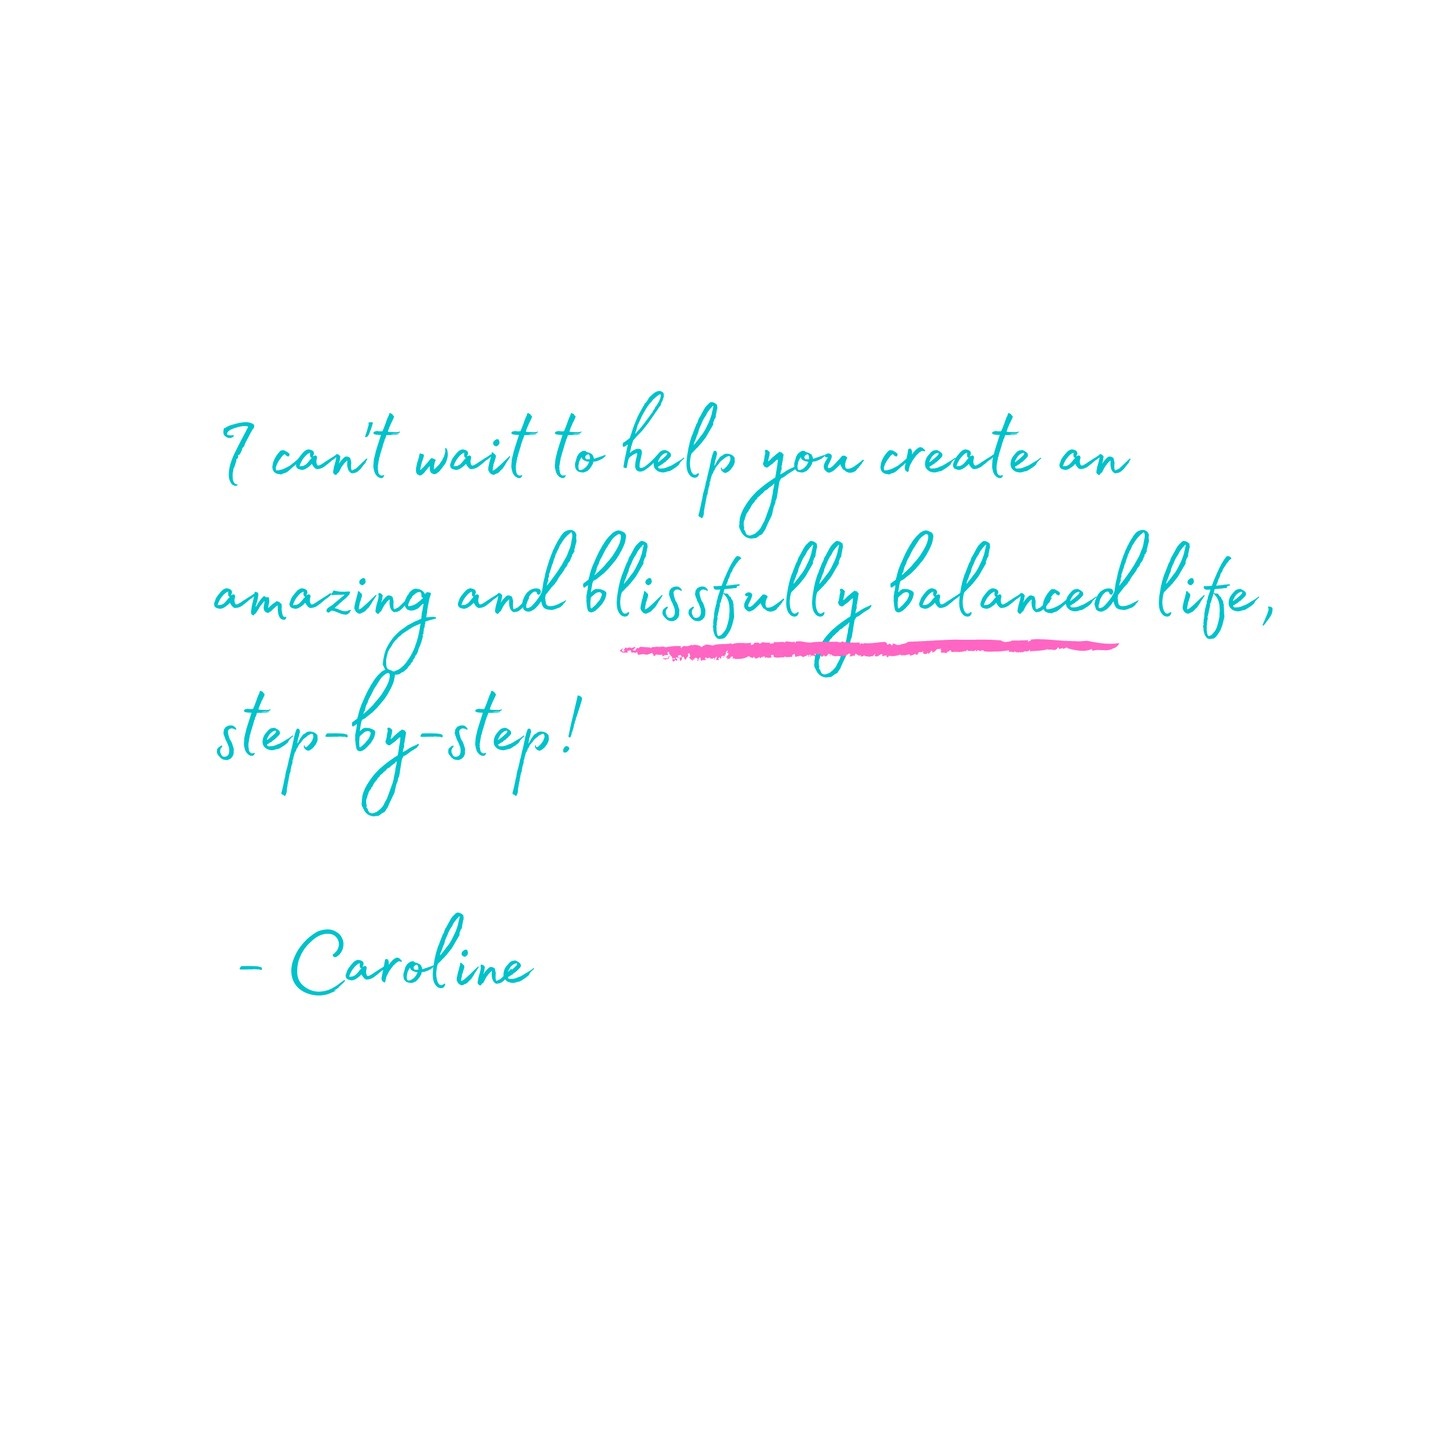 I can't wait to help you create an
amazing and blissfully balanced life,
step-by-step!
- Caroline